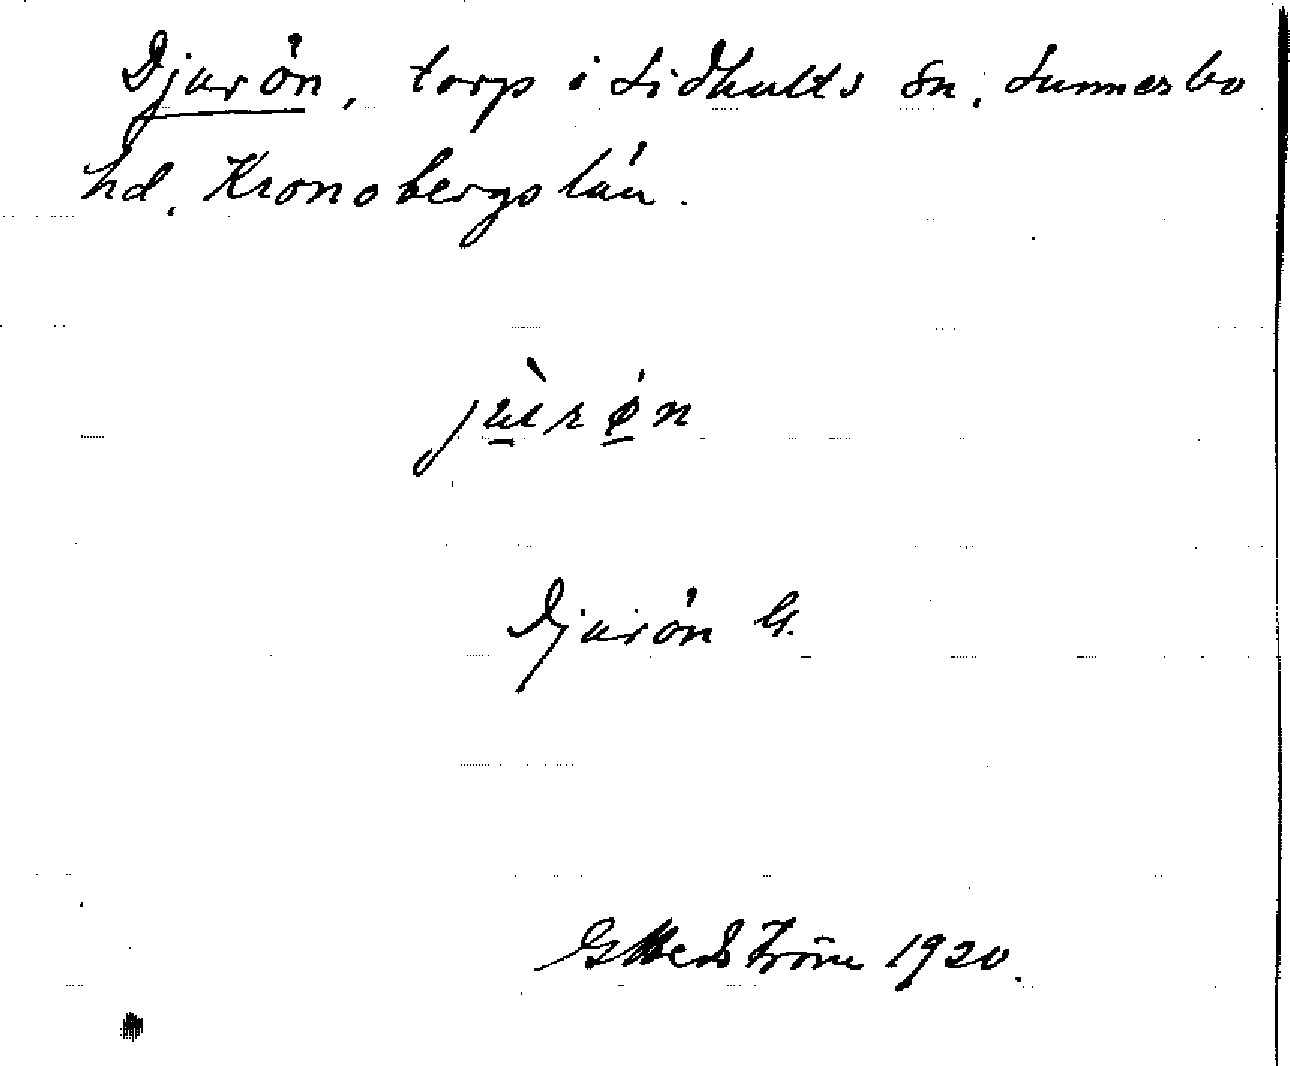 Djurön, torp i Lidhults sn, Sunnerbo
hd, Kronobergs län.
jùrøn
Djurön G.
G Hedström 1920.